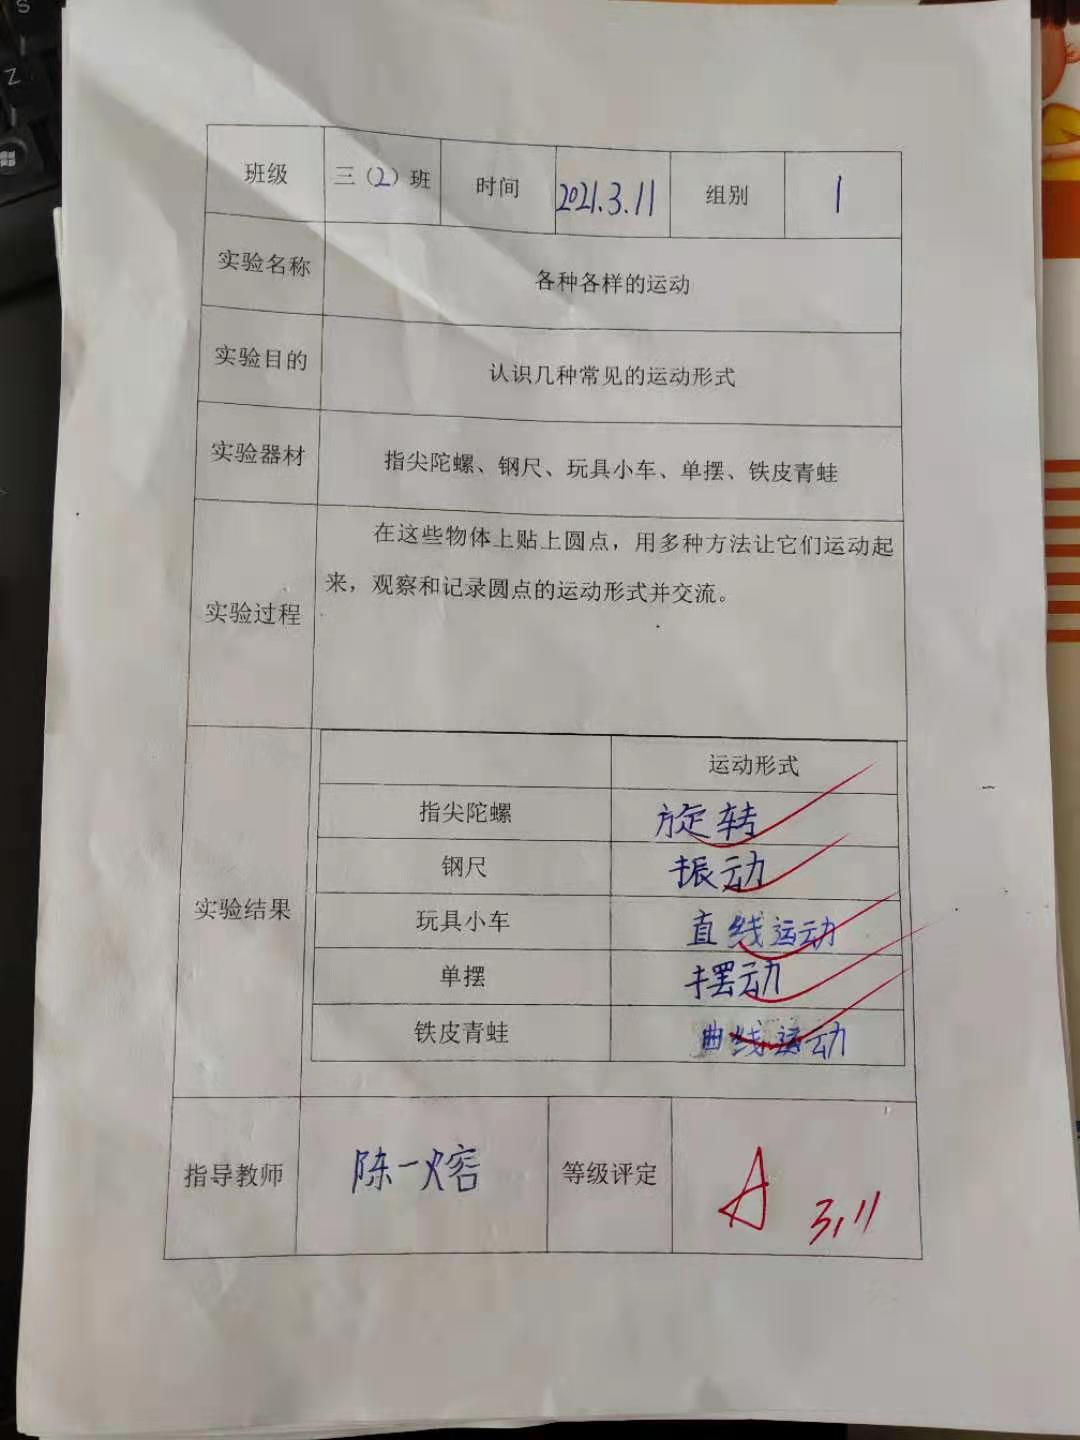 班级 三（2）班 时间 2021.3.11 组别 1
实验名称 各种各样的运动
实验目的 认识几种常见的运动形式
实验器材 指尖陀螺、钢尺、玩具小车、单摆、铁皮青蛙
实验过程 在这些物体上贴上圆点，用多种方法让它们运动起
来，观察和记录圆点的运动形式并交流。
实验结果
运动形式
指尖陀螺 旋转
钢尺 振动
玩具小车 直线运动
单摆 摆动
铁皮青蛙 曲线运动
指导教师 陈一熔 等级评定 A 3.11